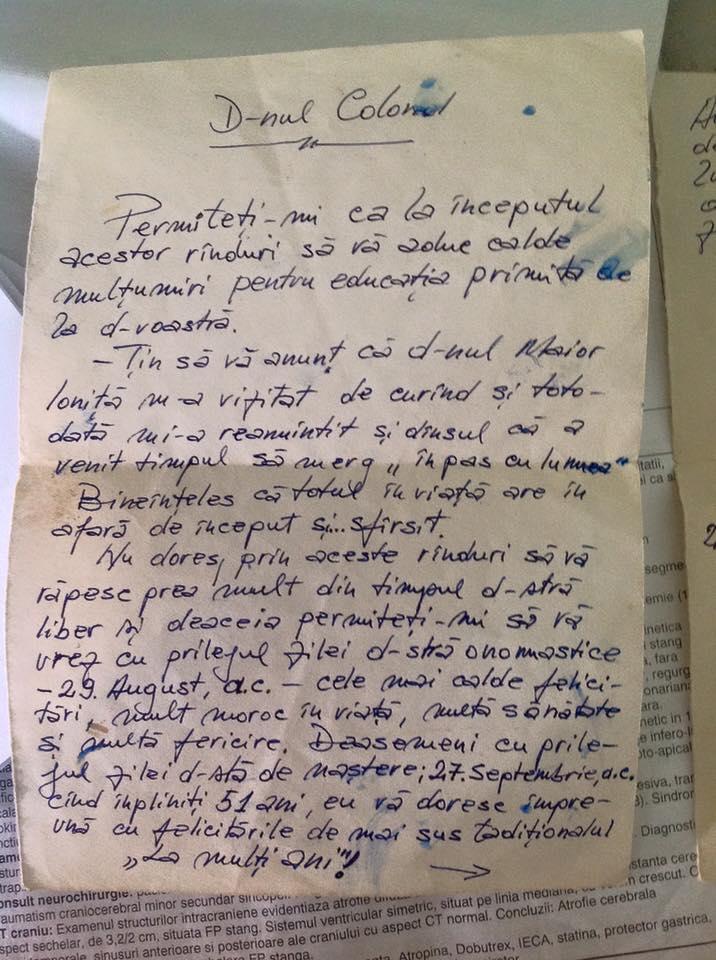 D-nul Colonel
Permiteți-mi ca la începutul
acestor rînduri să vă aduc calde
mulțumiri pentru educația primită de
la d-voastră.
– Țin să vă anunț că d-nul Maior
Ioniță m-a vizitat de curînd și toto-
dată mi-a reamintit și dînsul că a
venit timpul să merg „în pas cu lumea"
Bineînțeles că totul în viață are în
afară de început și... sfîrsit.
Nu doresc, prin aceste rînduri să vă
răpesc prea mult din timpul d-stră
liber și deaceia permiteți-mi să vă
urez cu prilejul zilei d-stră onomastice
– 29. August, a.c. – cele mai calde felici-
tări, mult noroc în viață, multă sănătate
și multă fericire. Deasemeni cu prile-
jul zilei d-stă de naștere; 27. Septembrie, a.c.
cînd împliniți 51 ani, eu vă doresc împre-
ună cu felicitările de mai sus tradiționalul
„La mulți ani"!
→
tatii,
segme
emie (1
inetica
i stang
, fara
regurg
onariana
ara.
netic in 1
e infero-l
oto-apical
esiva, tra
3). Sindror
Diagnosti
stanta cere
crescut. C
onsult neurochirurgie:
aumatism craniocerebral minor secundar sincopei.
T craniu: Examenul structurilor intracraniene evidentiaza atrofie
spect sechelar, de 3,2/2 cm, situata FP stang. Sistemul ventricular simetric, situat pe linia mediana,
temporale, sinusuri anterioare si posterioare ale craniului cu aspect CT normal. Concluzii: Atrofie cerebrala
FP stanga.
Atropina, Dobutrex, IECA, statina, protector gastrica,